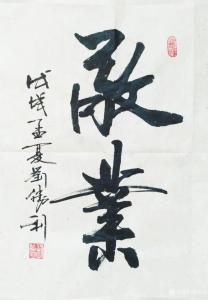 敬業
戊戌孟夏劉勝利